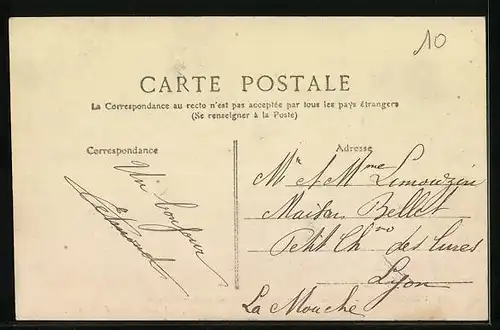 10
CARTE POSTALE
La Correspondance au recto n'est pas acceptée par tous les pays étrangers
(Se renseigner à la Poste)
Correspondance
Adresse
Un bonjour
Edmond
Mr et Mme Limouzin
Maison Bellet
Petit Ch des Cures
Lyon
La Mouche